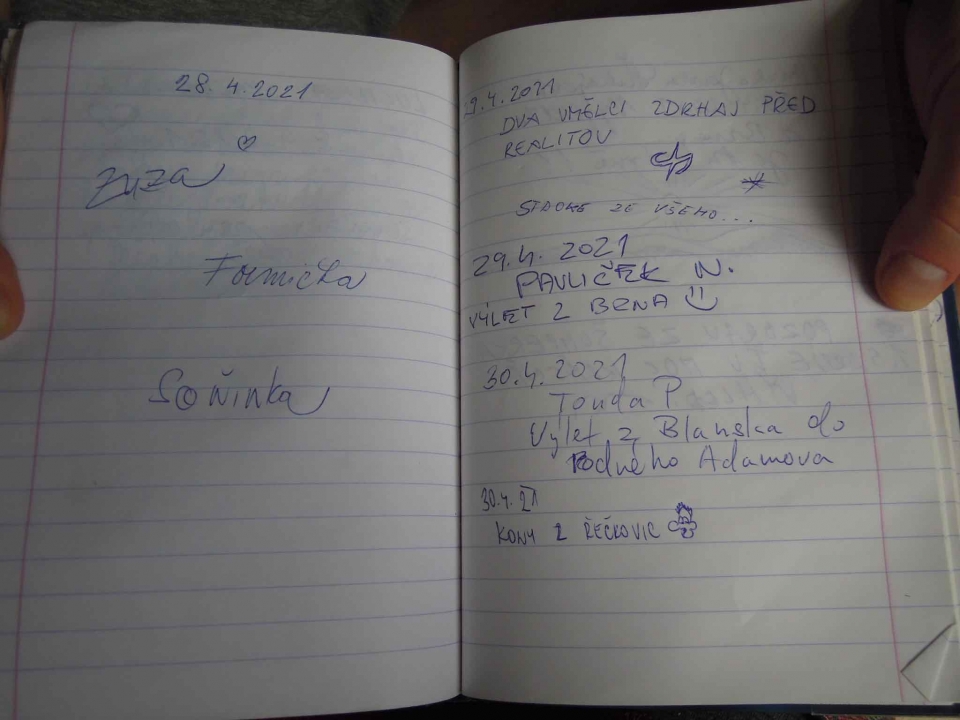 28. 4. 2021
Zuza
Formička
Soňinka
29.4.2021
DVA UMĚLCI ZDRHAJ PŘED
REALITOV
STACKE ZE VŠEHO...
29.4. 2021
PAVLIČEK N.
VÝLET Z BRNA
30.4. 2021
Tonda P
Výlet z Blanska do
Rodného Adamova
30.4. 21
KONY Z ŘEČKOVIC